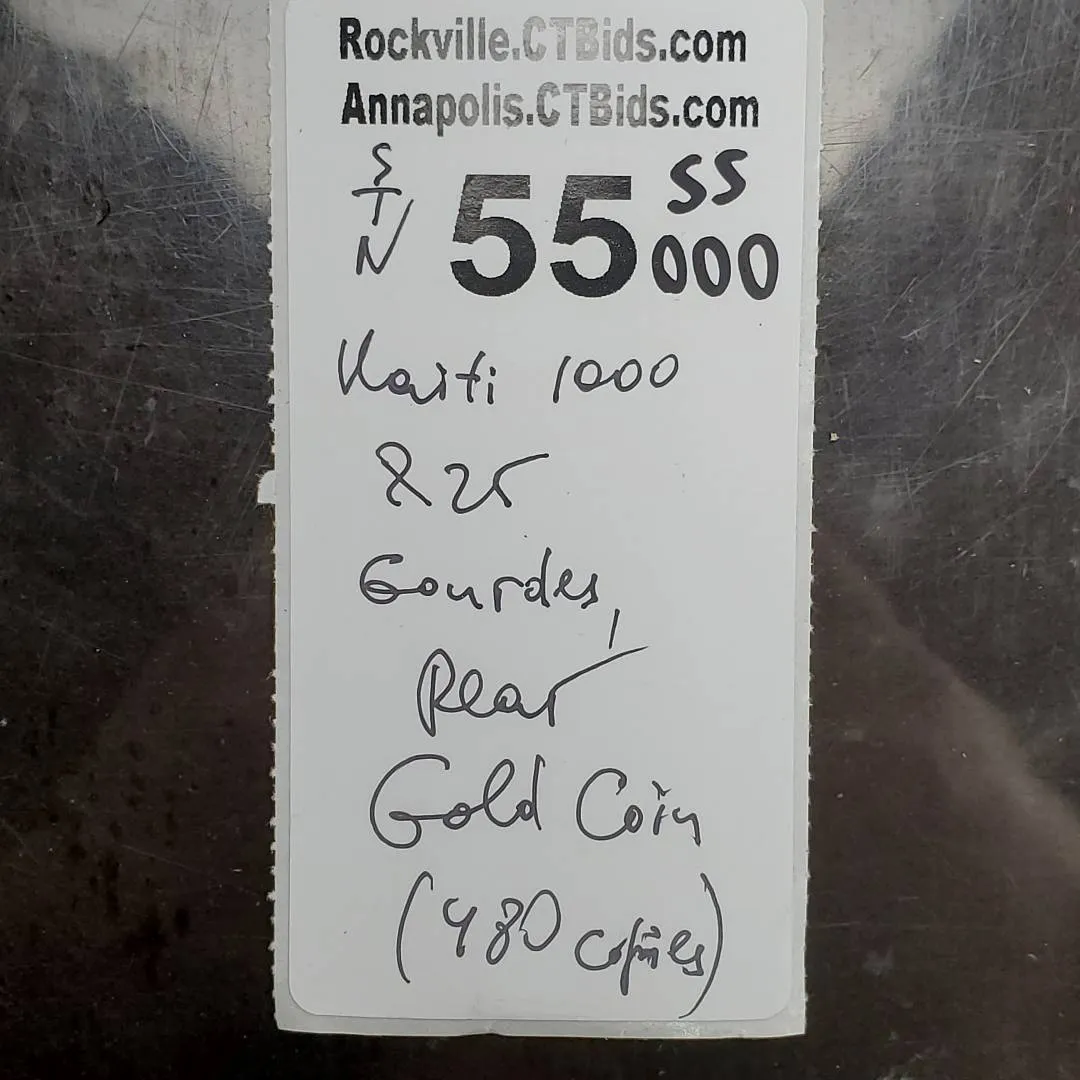 Rockville.CTBids.com
Annapolis.CTBids.com
S
T
N
55
SS
000
Haiti 1000
& 25
Gourdes,
Rear
Gold Coin
(480 copies)